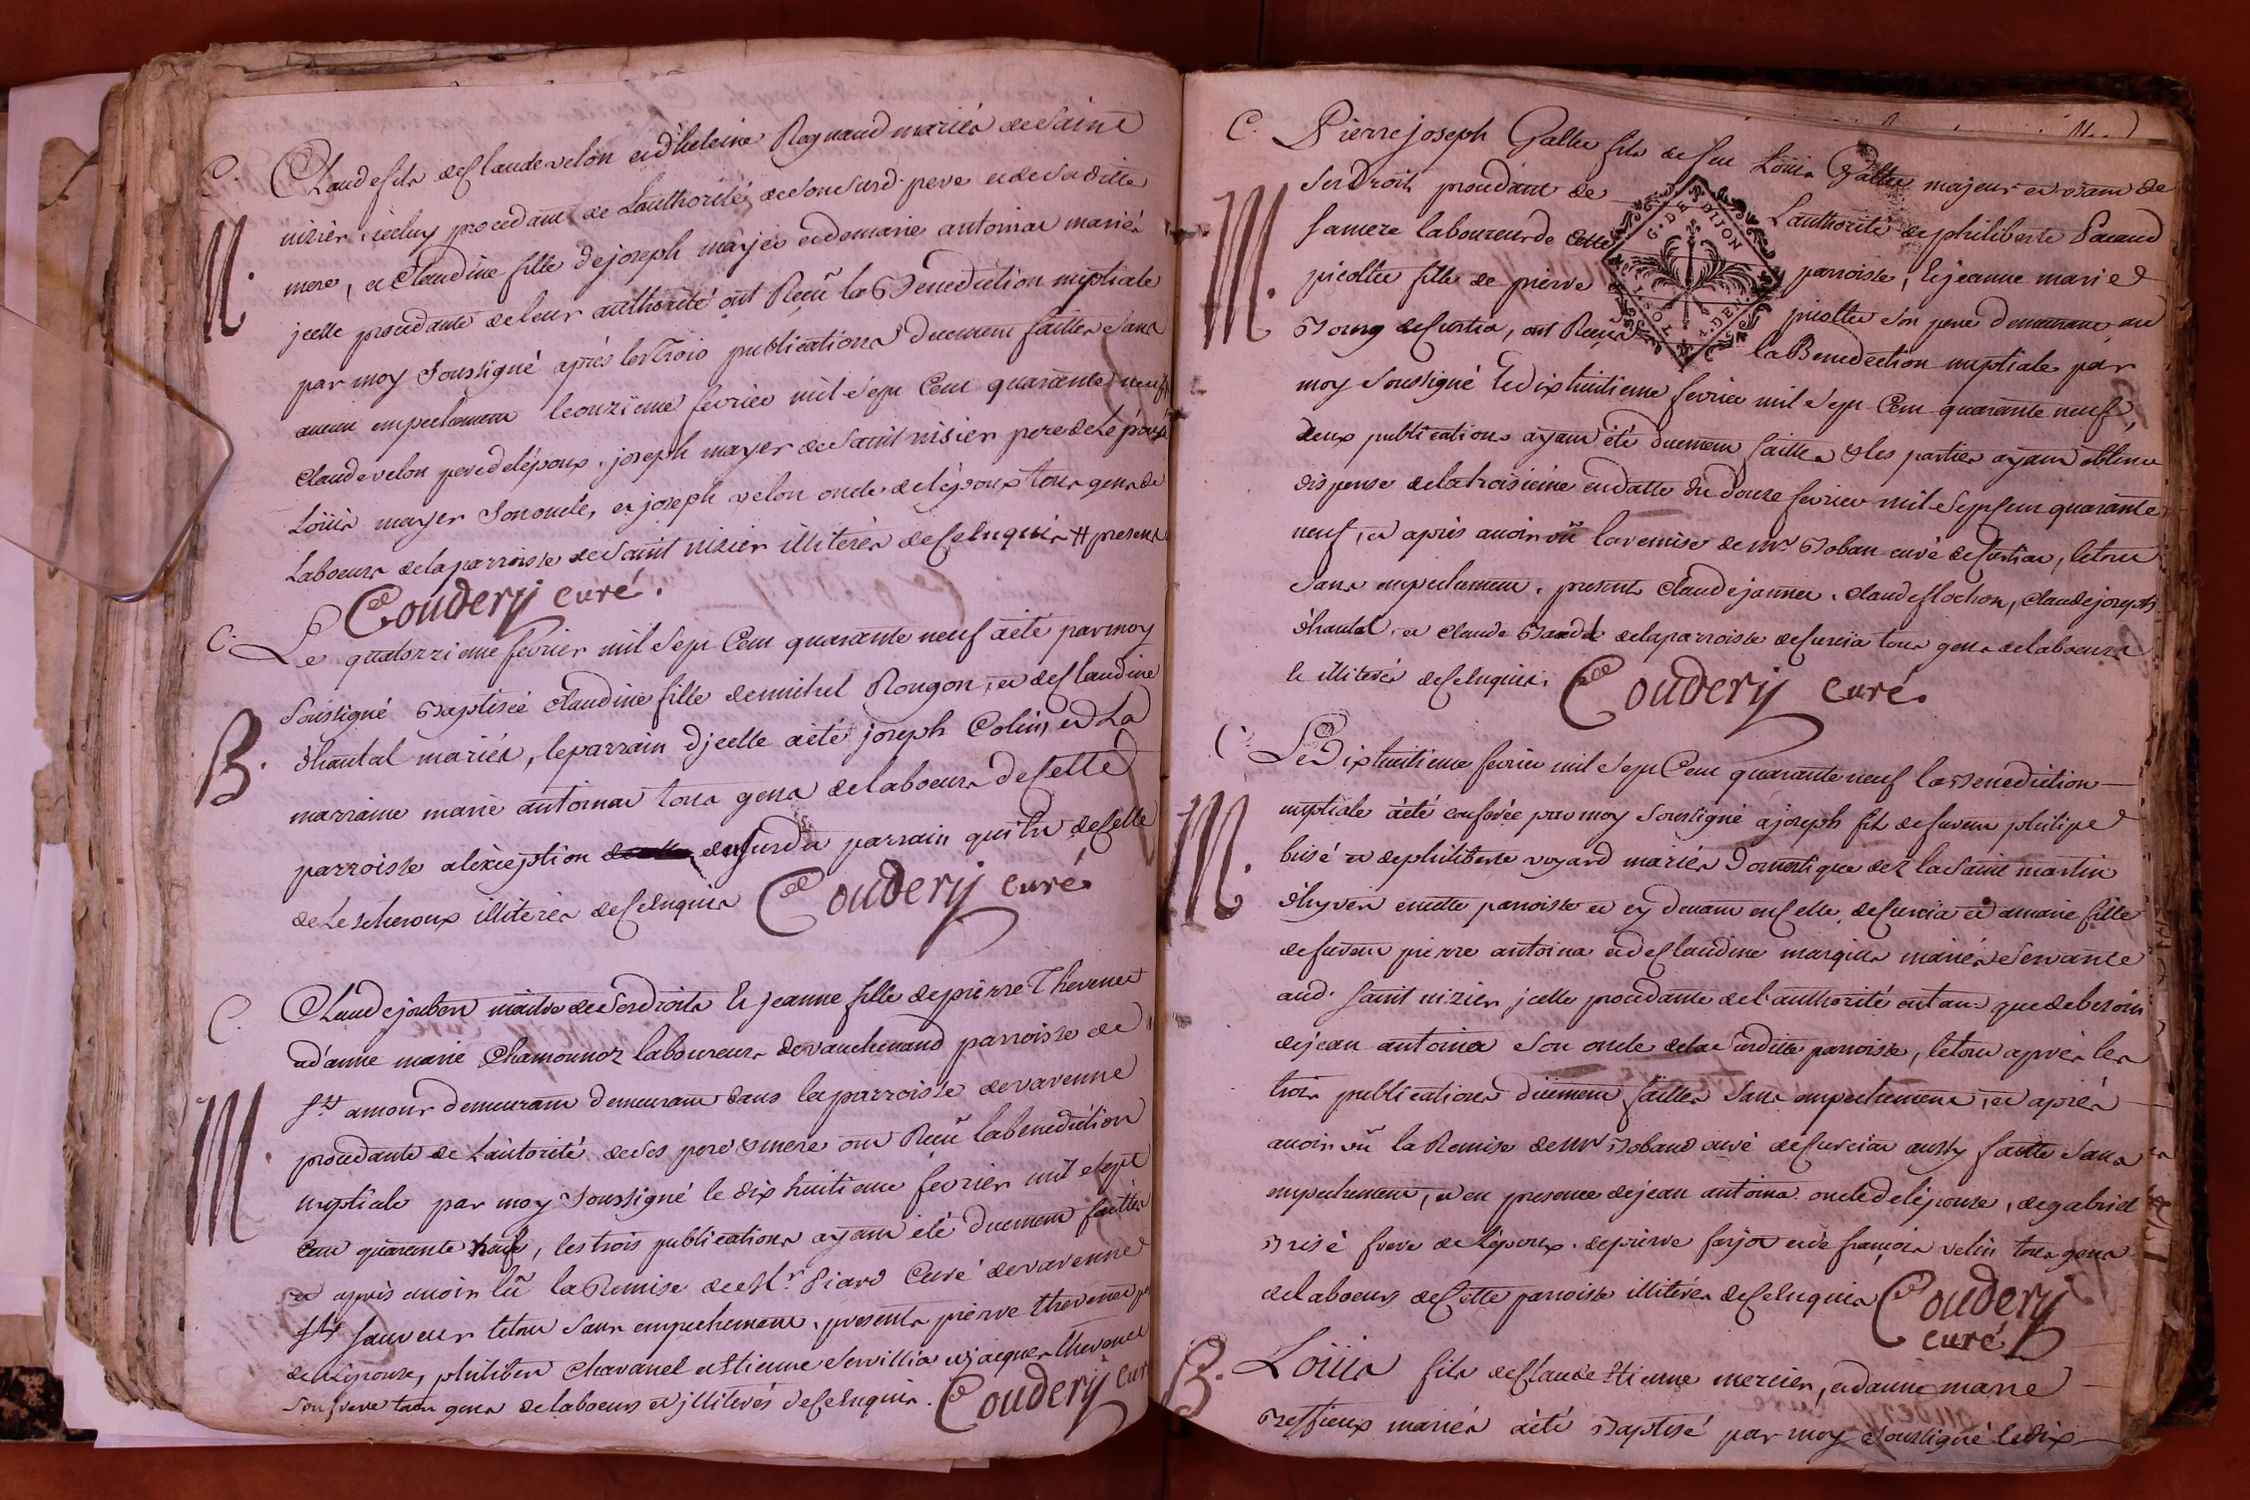 C. Claude fils de Claude velon et d'heleine Regnaud mariés de Saint
M. nizier, iceluy procedant de Lauthorité de Son Susd. pere et de Saditte
mere, et Claudine fille de joseph mayer et de marie antoinat mariés
jcelle procedante de leur authorité ont Reçû la Benediction nuptiale
par moy Soussigné après les Trois publications duement faittes Sans
aucun empechement le onzieme fevrier mil Sept Cent quarante neuf
Claude velon pere de lépoux, joseph mayer de Saint nizier pere de Lépouse
Loüis mayer Son oncle, et joseph velon oncle de lépoux tous gens de
Laboeurs de la parroisse de Saint nizier illiterés de Ce Enquis # presents
Coudery curé.
C. Le quatorzieme fevrier mil Sept Cent quarante neuf a été par moy
Soussigné Baptisée Claudine fille de michel Rongon, et de Claudine
B. Chantal mariés, le parrain d'jcelle a été joseph Colin, et La
marraine marie antoinat tous gens de laboeurs de Cette
parroisse a léxception du Susd. parrain qui Est de Celle
de Lescheroux illiterés de Ce Enquis Coudery curé
C. Claude joubert maitre de Ses droits et jeanne fille de pierre Thevenet
et d'anne marie Chamonnoz laboureurs de vauchenand parroisse de
M. St. amour demeurant demeurant dans la parroisse de varenne
procedante de Lautorité de Ses pere & mere ont Reçû la benediction
nuptiale par moy Soussigné le dix huitieme fevrier mil Sept
Cent quarante neuf, les trois publications ayant été duement faittes
et après avoir lû la Remise de Mr. Piard Curé de varenne
St. Sauveur le tout Sans empechement, presents pierre thevenet pere
de Lépouse, philibert Chavanel Estienne Servillia et jacques thevenet
Son frere tous gens de laboeurs et jlliterés de Ce Enquis. Coudery Curé
C. Pierre joseph Gallet fils de feu Loüis Gallet majeur et usant de
M. Ses Droits procedant de Lauthorité de philiberte Pacaud
Sa mere laboureur de Cette parroisse, & jeanne marie
picollet fille de pierre picollet Son pere demeurant au
G. DE DIJON
Bourg de Curtia, ont Reçu la Benediction nuptiale par
moy Soussigné Le dix huitieme fevrier mil Sept Cent quarante neuf,
deux publications ayant été duement faittes & les parties ayant obtenu
dispense de la troisieme en datte du douze fevrier mil Sept Cent quarante
neuf, et après avoir vû la remise de Mr. Boban curé de Curtia, le tout
Sans empechement, presents Claude jannet, Claude flochon, Claude joseph
Chantal, et Claude de la parroisse de Curcia tous gens de laboeurs
& illiterés de Ce Enquis. Coudery curé.
C. Le Dix huitieme fevrier mil Sept Cent quarante neuf la Benediction
M. nuptiale a été conferée par moy Soussigné a joseph fils de feu philipe
brisé et de philiberte voyard mariés Domestique dez la Saint martin
d'hyver en cette parroisse et cy devant en Celle de Curcia et a marie fille
de pierre antoinat et de Claudine marquis mariés Servante
aud. Saint nizier jcelle procedante de l'authorité en tant que de besoin
de jean antoinat Son oncle de la Susditte parroisse, le tout après les
trois publications düement faittes Sans empechement, et après
avoir vû la Remise de Mr. Boband curé de Curcia aussy faitte Sans
empechement, et en presence de jean antoinat oncle de lépouse, de gabriel
Brisé frere de Lépoux, de pierre forjot et de françois velin tous gens
de laboeurs de Cette parroisse illiterés de Ce Enquis Coudery
curé
B. Loüis fils de Claude Etienne mercier, et danne marie
Buffieux mariés a été Baptisé par moy Soussigné le dix